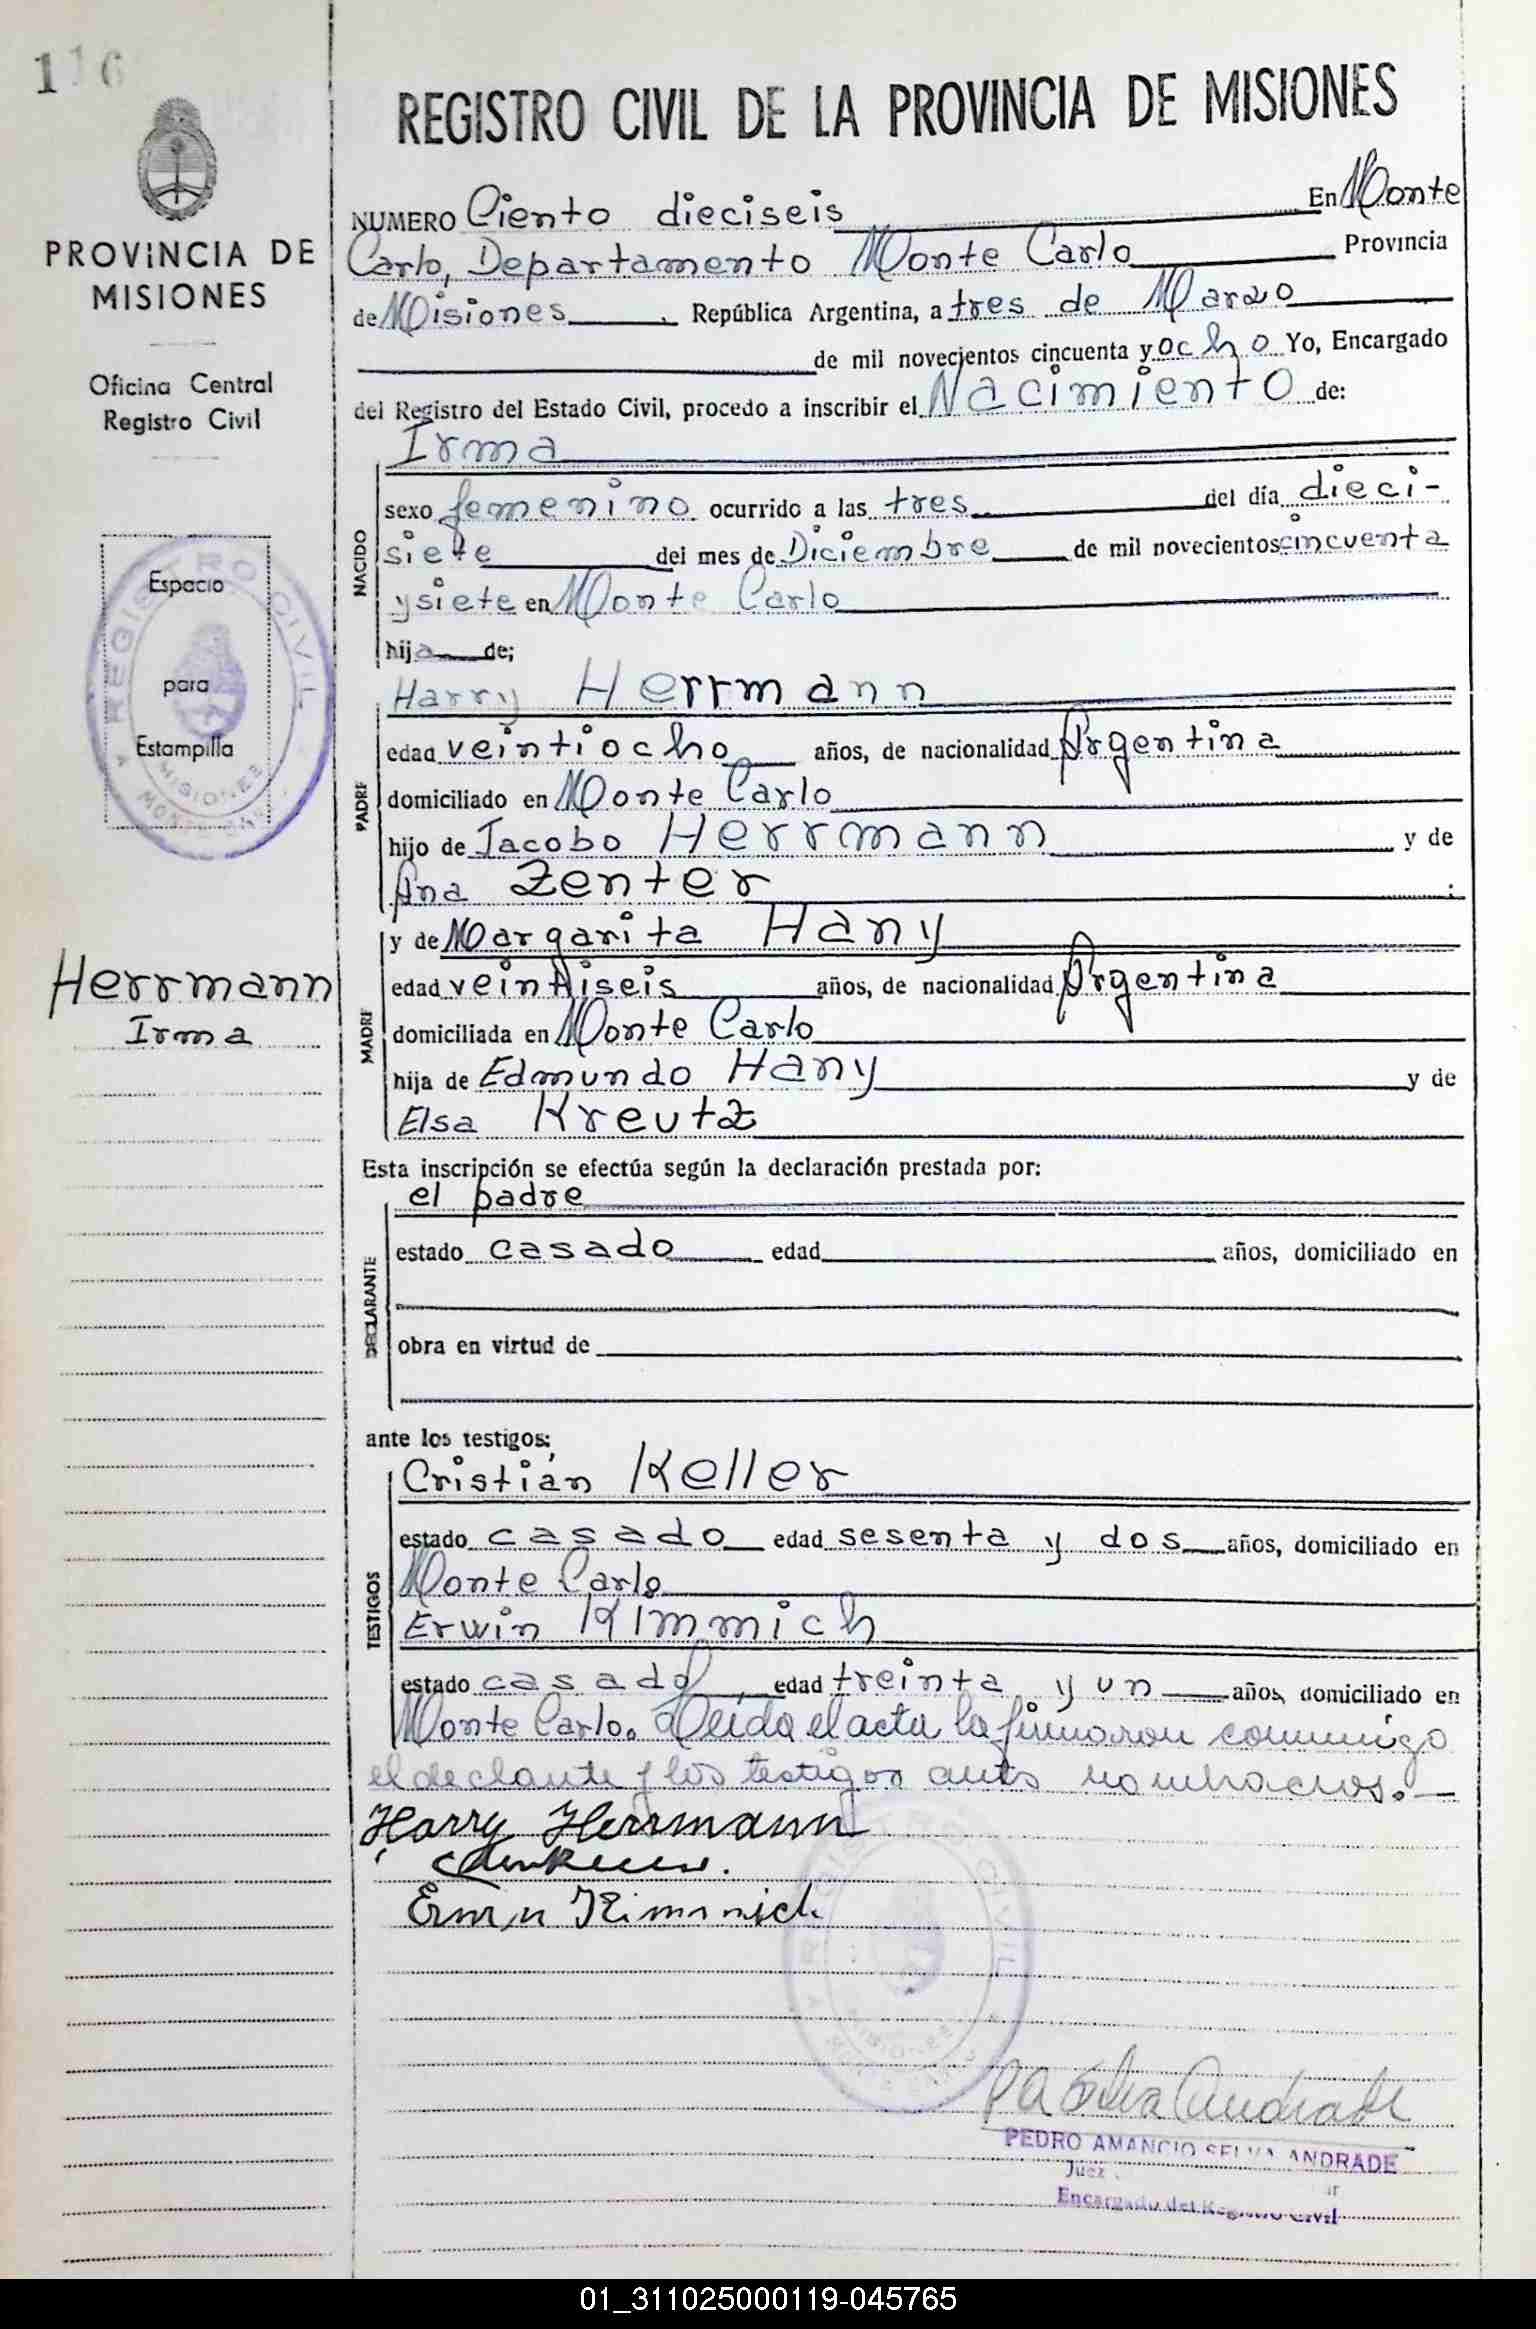 116
REGISTRO CIVIL DE LA PROVINCIA DE MISIONES
PROVINCIA DE
MISIONES
Oficina Central
Registro Civil
Espacio
para
Estampilla
REGISTRO CIVIL
MISIONES
Herrmann
Irma
NUMERO Ciento dieciseis En Monte
Carlo, Departamento Monte Carlo Provincia
de Misiones, República Argentina, a tres de Marzo
de mil novecientos cincuenta y ocho Yo, Encargado
del Registro del Estado Civil, procedo a inscribir el Nacimiento de:
NACIDO
Irma
sexo femenino ocurrido a las tres del día dieci-
siete del mes de Diciembre de mil novecientos cincuenta
y siete en Monte Carlo
hija de;
PADRE
Harry Herrmann
edad veintiocho años, de nacionalidad Argentina
domiciliado en Monte Carlo
hijo de Jacobo Herrmann y de
Ana Zenter ;
MADRE
y de Margarita Hany
edad veintiseis años, de nacionalidad Argentina
domiciliada en Monte Carlo
hija de Edmundo Hany y de
Elsa Kreutz
Esta inscripción se efectúa según la declaración prestada por:
DECLARANTE
el padre
estado casado edad años, domiciliado en
obra en virtud de
ante los testigos;
TESTIGOS
Cristián Keller
estado casado edad sesenta y dos años, domiciliado en
Monte Carlo
Erwin Kimmich
estado casado, edad treinta y un años, domiciliado en
Monte Carlo. Leída el acta la firmaron conmigo
el declante y los testigos ants nombrados.—
Harry Herrmann
Erwin Kimmich
REGISTRO CIVIL
MISIONES
PA Selva Andrade
PEDRO AMANCIO SELVA ANDRADE
Juez
Encargado del Registro Civil
01_311025000119-045765